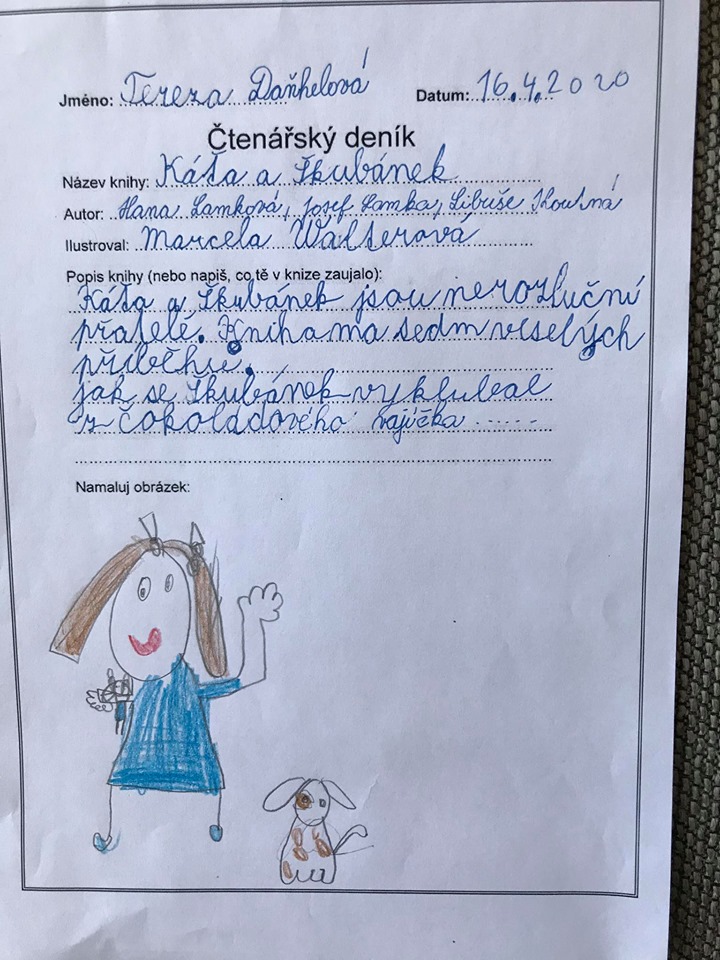 Jméno: Tereza Daňhelová Datum: 16.4.2020
Čtenářský deník
Název knihy: Káťa a Škubánek
Autor: Hana Lamková, Josef Lamka, Libuše Koutná
Ilustroval: Marcela Walterová
Popis knihy (nebo napiš, co tě v knize zaujalo):
Káťa a Škubánek jsou nerozluční
přatelé. Kniha ma sedm veselých
příběhů.
jak se Škubánek vyklubal
z čokoládového vajíčka .......
Namaluj obrázek: